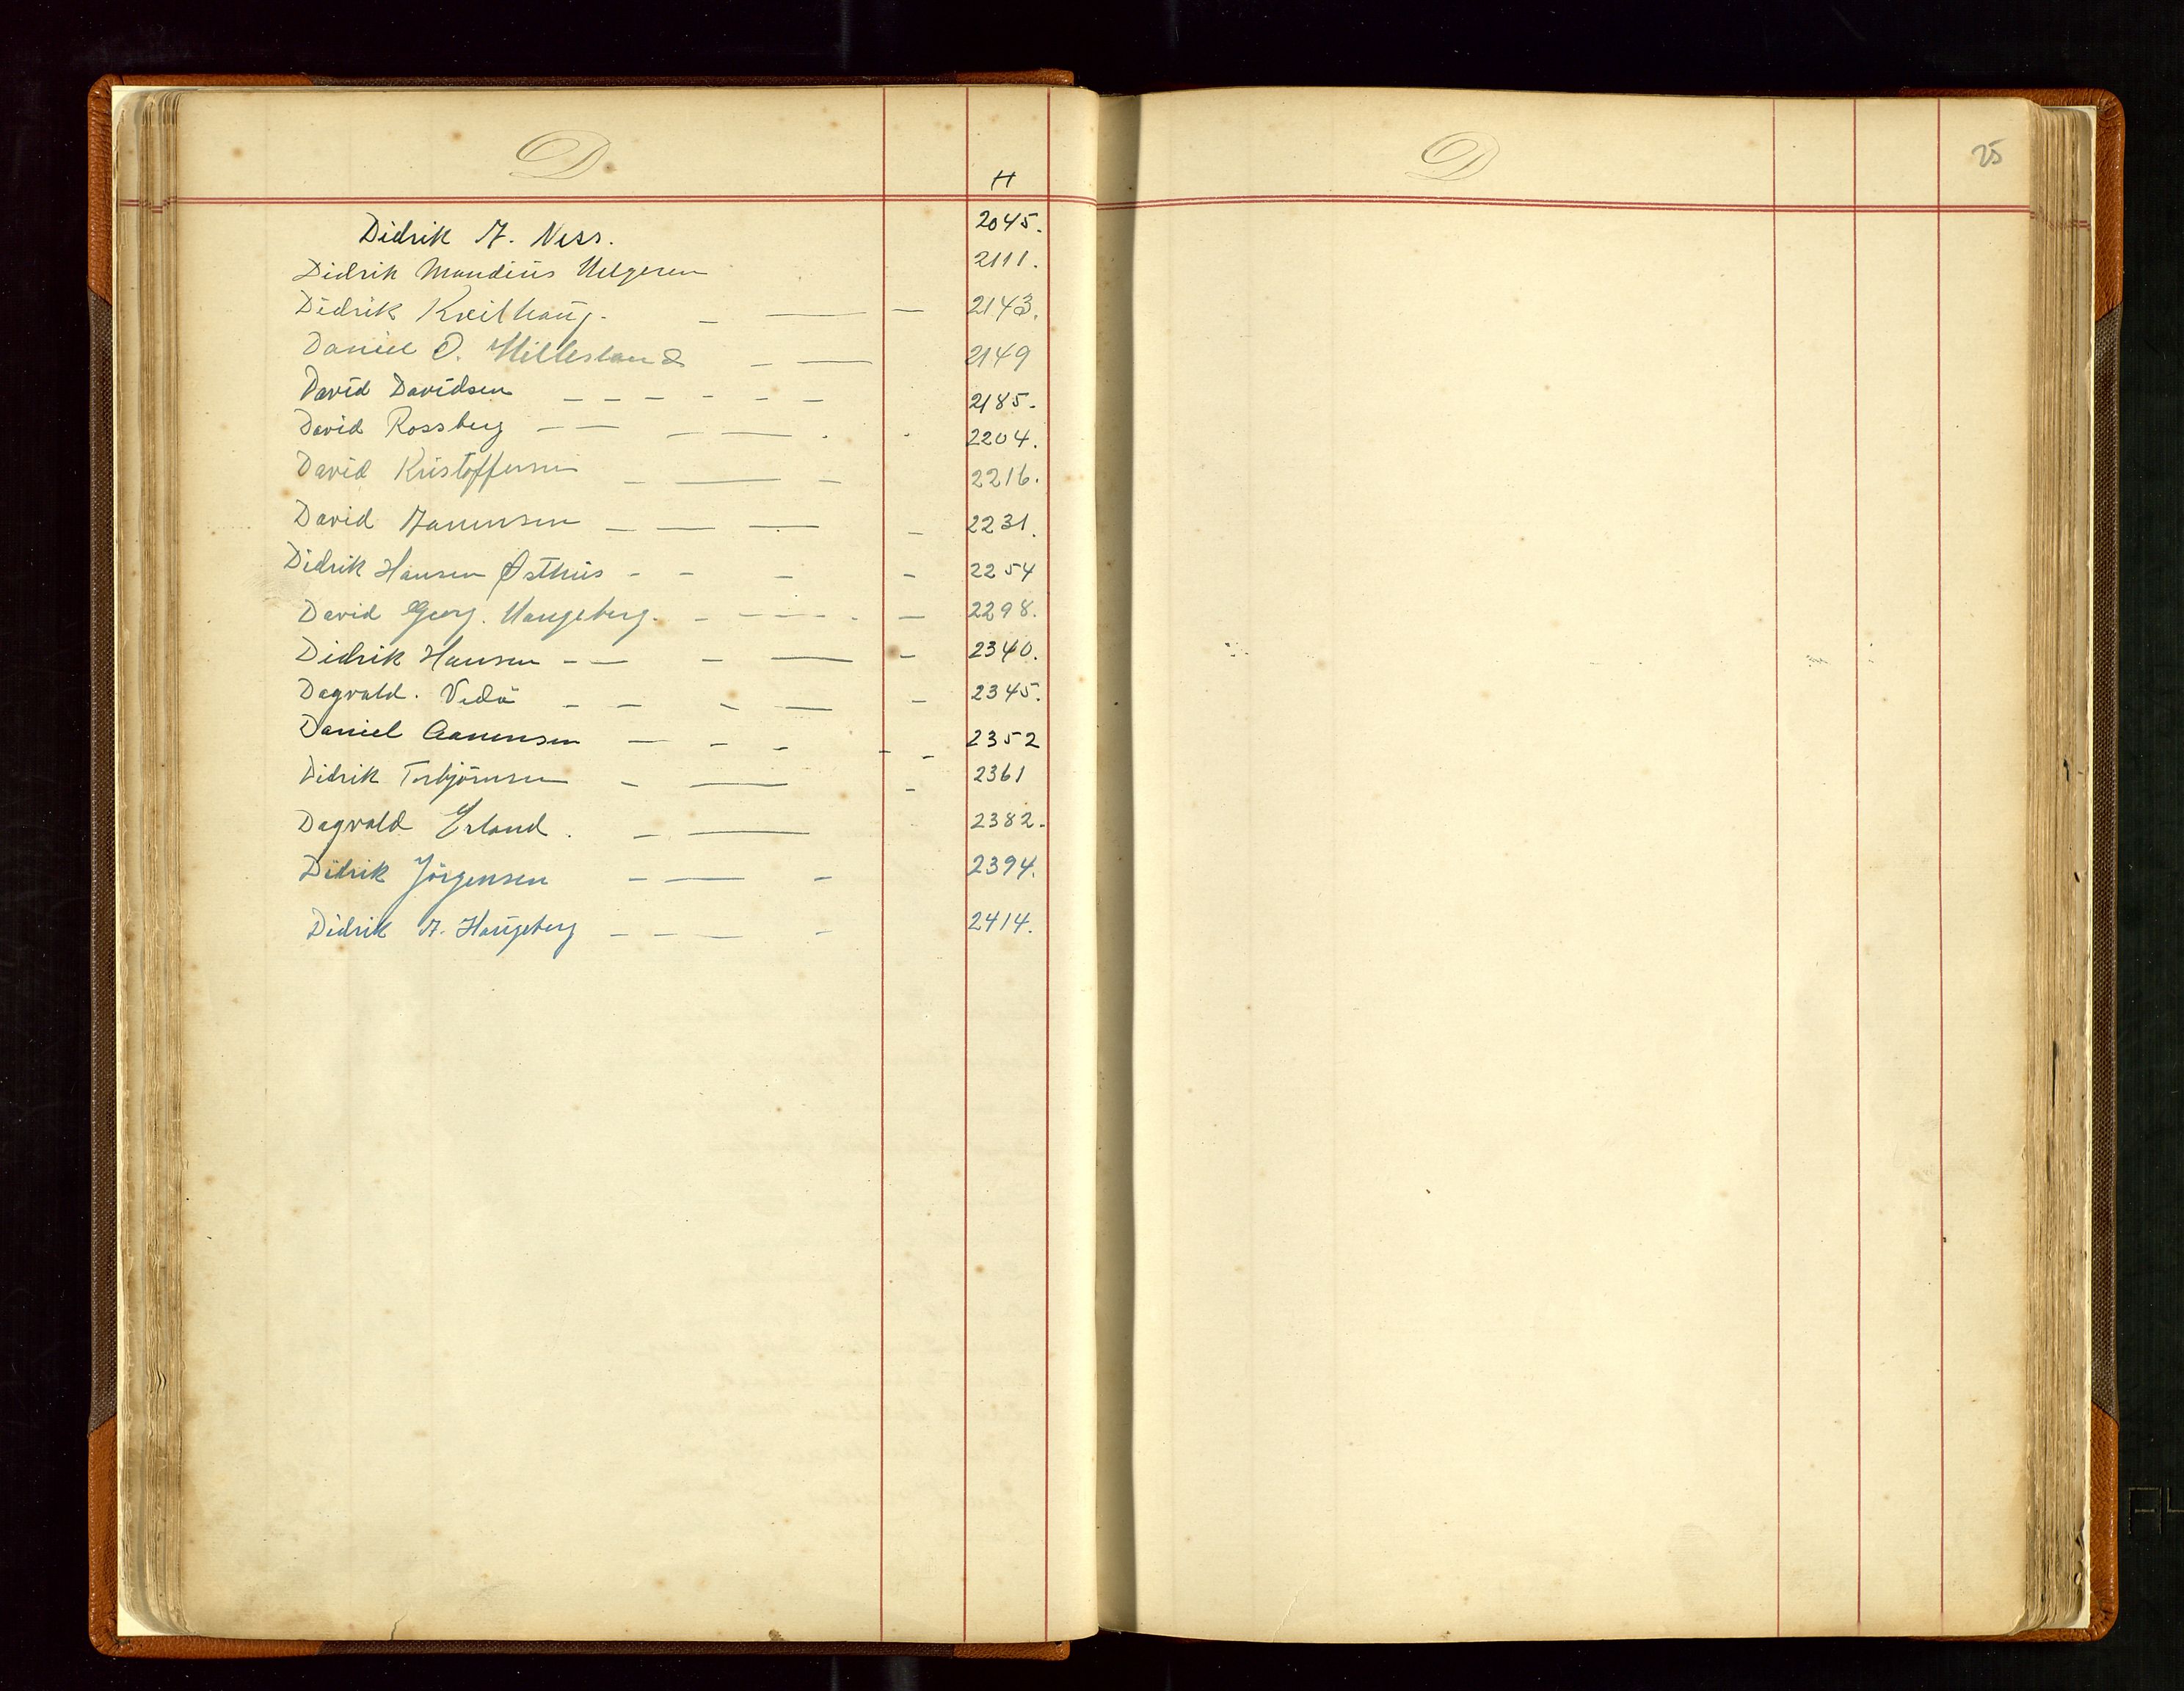 D
H
Didrik A. Ness. 2045.
Didrik Mandius Helgesen 2111.
Didrik Kvilhaug. 2143.
Daniel O. Hillesland 2149
David Davidsen 2185.
David Rossberg 2204.
David Kristoffersen 2216.
David Aanensen 2231.
Didrik Hansen Østhus 2254
David Georg. Haugeberg. 2298.
Didrik Hansen 2340.
Dagvald. Vedö 2345.
Daniel Aanensen 2352
Didrik Torbjörnsen 2361
Dagvald Erland. 2382.
Didrik Jörgensen 2394.
Didrik A. Haugeberg 2414.
D
25